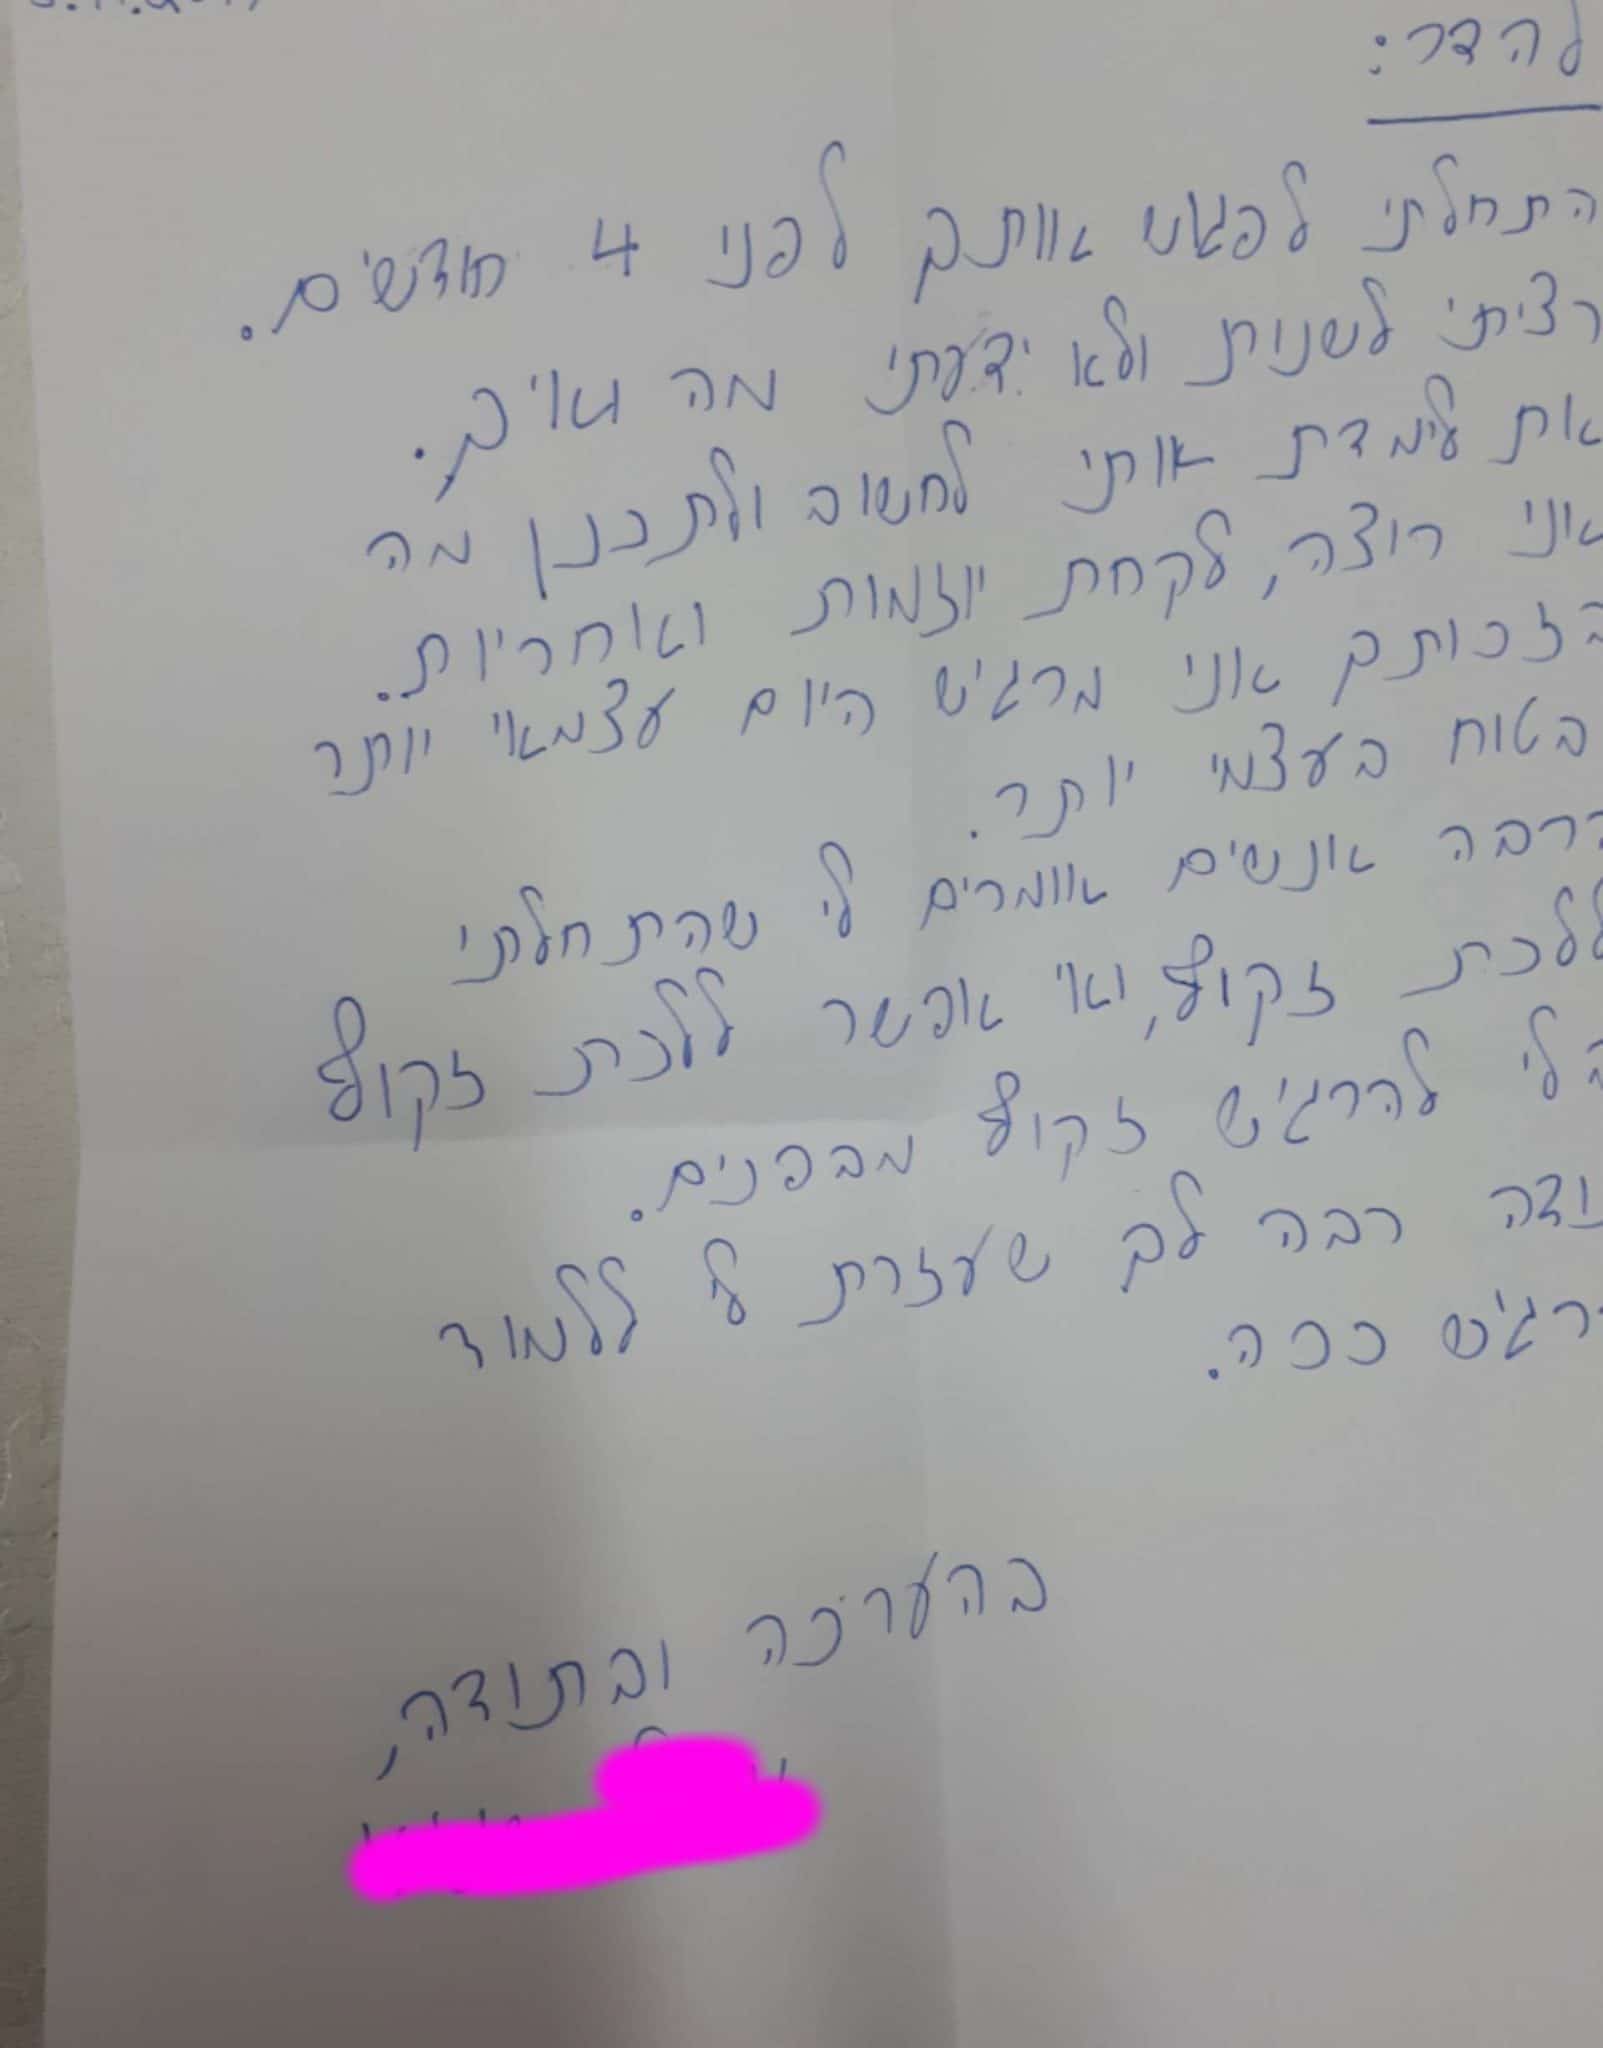 להדר:
התחלתי לפגוש אותך לפני 4 חודשים.
רציתי לשנות ולא ידעתי מה ואיך.
את לימדת אותי לחשוב ולתכנן מה
אני רוצה, לקחת יוזמות ואחריות.
בזכותך אני מרגיש היום עצמאי יותר
בטוח בעצמי יותר.
הרבה אנשים אומרים לי שהתחלתי
ללכת זקוף, ואי אפשר ללכת זקוף
בלי להרגיש זקוף מבפנים.
תודה רבה לך שעזרת לי ללמוד
להרגיש ככה.
בהערכה ובתודה,